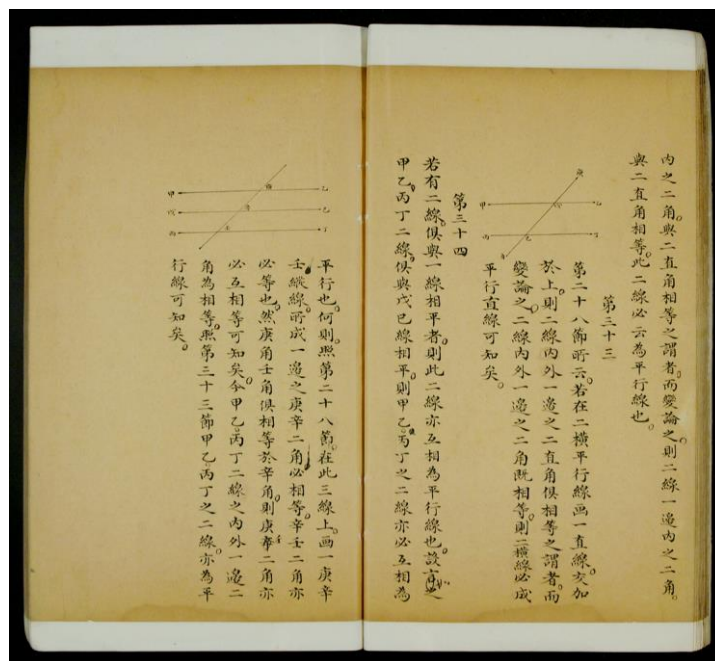 内之二角。與二直角相等之謂者。而變論之。則二線一邉内之二角。
與二直角相等。此二線必云為平行線也。
第三十三
第二十八節所云。若在二横平行線画一直線。交加
於上。則二線内外一邉之二直角俱相等之謂者。而
變論之。二線内外一邉之二角既相等。則二横線必成
平行直線可知矣。
第三十四
若有二線。俱與一線相平者。則此二線亦互相為平行線也。設
甲乙。丙丁二線。俱與戊己線相平。則甲乙。丙丁之二線亦必互相為
平行也。何則。照第二十八節。在此三線上。画一庚辛
壬縱線。所成一邉之庚辛二角。必相等。辛壬二角亦
必等也。然庚角壬角俱相等於辛角。則庚二角亦
必互相等可知矣。今甲乙。丙丁二線之内外一邉二
角為相等。照第三十三節甲乙丙丁之二線。亦為平
行線可知矣。
甲
乙
戊
丙
丁
甲
乙
丙
丁